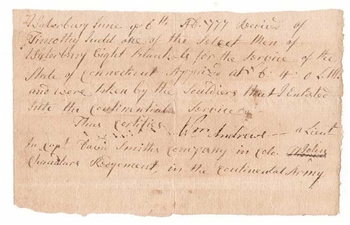 Waterbury June ye 6th AD. 1777 Receivd of
Timothy Judd one of the Select Men of
Waterbury Eight Blankets for the Service of the
State of Connecticut Apprized at £ 6 = 4 = 0 L M
and were taken by the Souldiers that Enlisted
into the Continential Service
This Certifies Wm Andrews a Lieut
In Capt David Smiths Company in Colo John
Chandlers Regement, in the Continental Army